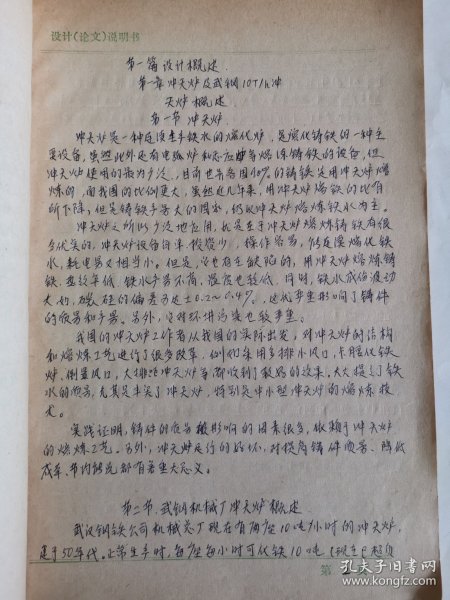 设计(论文)说明书
第一篇 设计概述.
第一章 冲天炉及武钢10T/h冲
天炉概述.
第一节 冲天炉.
冲天炉是一种连续生产铁水的熔化炉,是熔化铸铁的一种主
要设备,虽然此外还有电弧炉和感应炉等熔炼铸铁的设备,但
冲天炉使用的最为广泛,目前世界各国 的铸铁是用冲天炉熔
炼的,而我国的比例更大,虽然近几年来,用冲天炉熔铁的比有
所下降,但是铸铁产量大的国家,仍以冲天炉熔炼铁水为主.
冲天炉之所以广泛地应用,就是在于冲天炉熔炼铸铁有很
多优点的,冲天炉设备简单,投资少,操作容易,能连续熔化铁
水,耗电量又相当小。但是,它也存在缺陷的,用冲天炉熔炼铸
铁,热效率低,铁水产量不高,温度也较低,同时,铁水成份波动
大的,碳、硅的偏差可达±0.2~0.4%,这就严重影响了铸件
的质量和产量。另外,它对环境污染也较严重。
我国的冲天炉工作者从我国的实际出发,对冲天炉的结构
和熔炼工艺进行了很多改革,例如采用多排小风口,卡腰化铁
炉,倒置风口,大排距冲天炉等都收到了较好的效果。大大提高了铁
水的质量,尤其是丰富了冲天炉,特别是中小型冲天炉的熔炼技
术。
实践证明,铸件的质量影响的因素很多,依赖于冲天炉
的熔炼工艺。另外,冲天炉运行的好坏,对提高铸件质量、降低
成本、节约能源都有着重大意义。
第二节 武钢机械厂冲天炉概述.
武汉钢铁公司机械总厂现在有两座10吨/小时的冲天炉,
建于50年代。正常生产时,每座每小时可化铁10吨
第
孔夫子旧书网